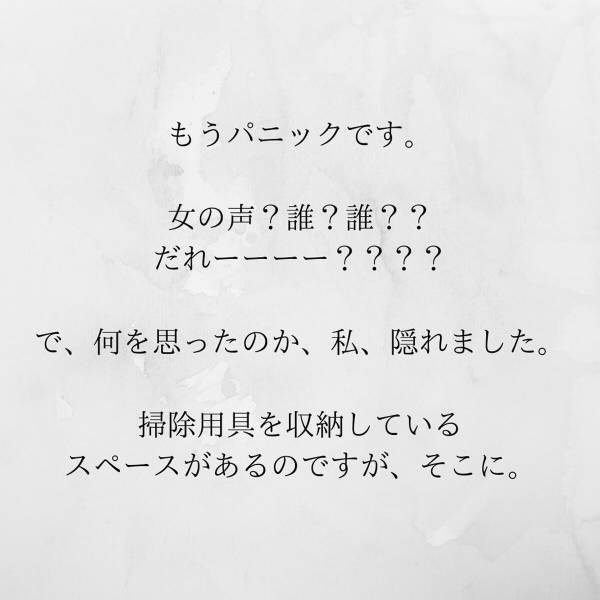 もうパニックです。
女の声？誰？誰？？
だれーーーー？？？？
で、何を思ったのか、私、隠れました。
掃除用具を収納している
スペースがあるのですが、そこに。